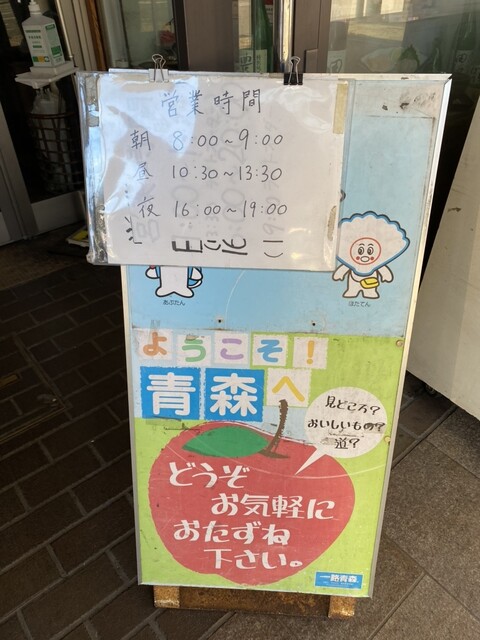 営業時間
朝 8:00~9:00
昼 10:30~13:30
夜 16:00~19:00
あぷたん
ほたてん
ようこそ!
青森へ
見どころ?
おいしいもの?
道?
どうぞ
お気軽に
おたずね
下さい。
一路青森